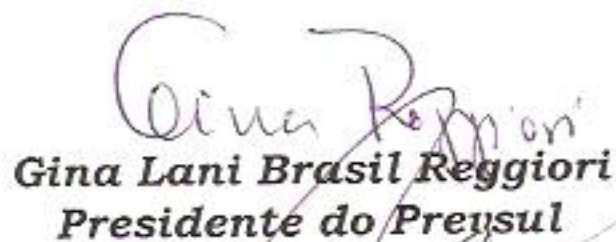 Gina Reggiori
Gina Lani Brasil Reggiori
Presidente do Prevsul